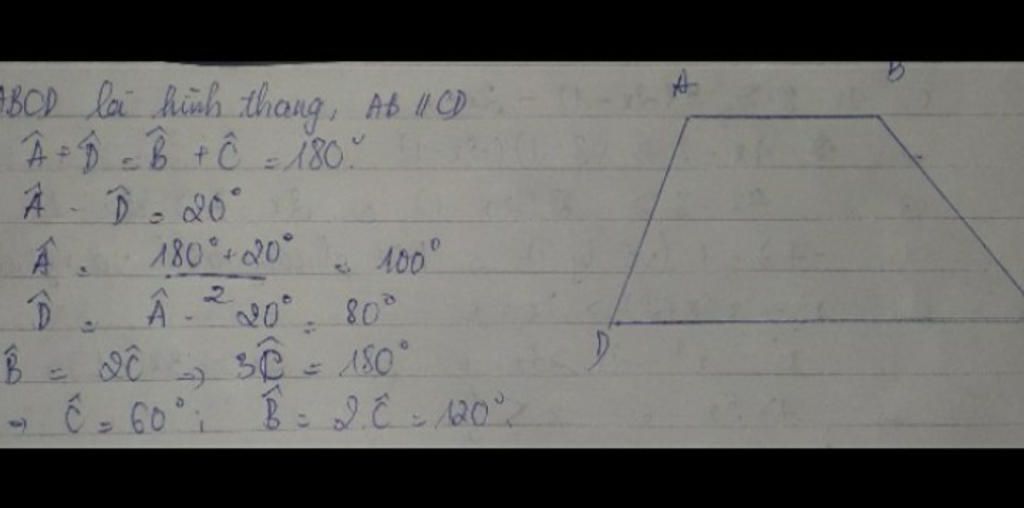 ABCD là hình thang, AB // CD
Â + D̂ = B̂ + Ĉ = 180°.
Â - D̂ = 20°
Â = (180° + 20°)/2 = 100°
D̂ = Â - 20° = 80°
B̂ = 2Ĉ => 3Ĉ = 180°
=> Ĉ = 60° ; B̂ = 2.Ĉ = 120°.
A
B
D